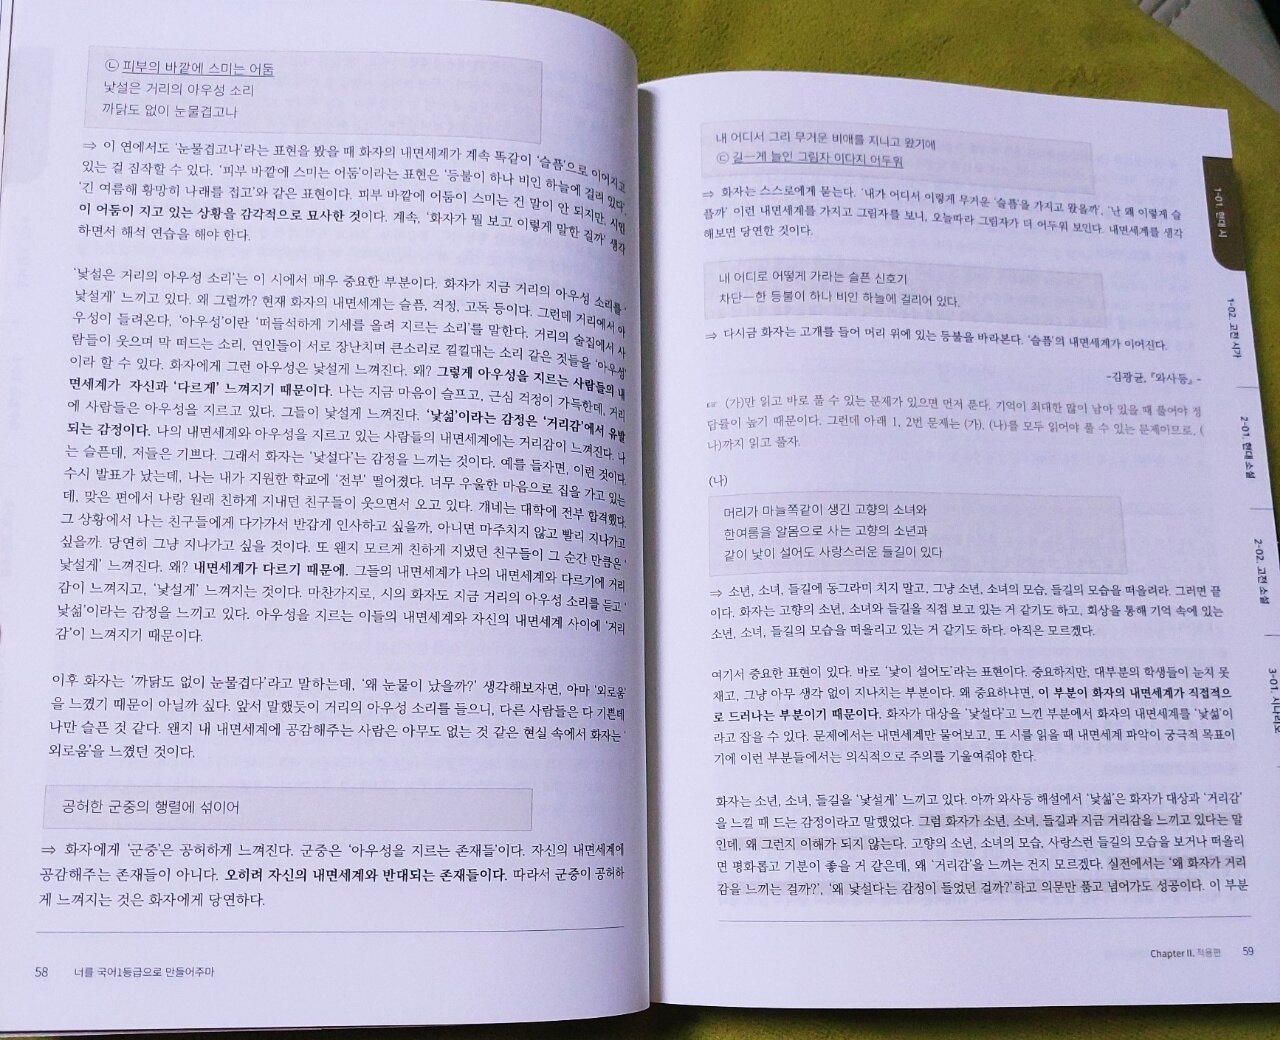 ㉡ 피부의 바깥에 스미는 어둠
낯설은 거리의 아우성 소리
까닭도 없이 눈물겹고나
⇒ 이 연에서도 '눈물겹고나'라는 표현을 봤을 때 화자의 내면세계가 계속 똑같이 '슬픔'으로 이어지고
있는 걸 짐작할 수 있다. '피부 바깥에 스미는 어둠'이라는 표현은 '등불이 하나 비인 하늘에 걸려 있다',
'긴 여름해 황망히 나래를 접고'와 같은 표현이다. 피부 바깥에 어둠이 스미는 건 말이 안 되지만, 시인
이 어둠이 지고 있는 상황을 감각적으로 묘사한 것이다. 계속, '화자가 뭘 보고 이렇게 말한 걸까' 생각
하면서 해석 연습을 해야 한다.
'낯설은 거리의 아우성 소리'는 이 시에서 매우 중요한 부분이다. 화자가 지금 거리의 아우성 소리를 '
낯설게' 느끼고 있다. 왜 그럴까? 현재 화자의 내면세계는 슬픔, 걱정, 고독 등이다. 그런데 거리에서 아
우성이 들려온다, '아우성'이란 '떠들석하게 기세를 올려 지르는 소리'를 말한다. 거리의 술집에서 사
람들이 웃으며 막 떠드는 소리, 연인들이 서로 장난치며 큰소리로 낄낄대는 소리 같은 것들을 '아우성'
이라 할 수 있다. 화자에게 그런 아우성은 낯설게 느껴진다. 왜? 그렇게 아우성을 지르는 사람들의 내
면세계가 자신과 '다르게' 느껴지기 때문이다. 나는 지금 마음이 슬프고, 근심 걱정이 가득한데, 거리
에 사람들은 아우성을 지르고 있다. 그들이 낯설게 느껴진다. '낯섦'이라는 감정은 '거리감'에서 유발
되는 감정이다. 나의 내면세계와 아우성을 지르고 있는 사람들의 내면세계에는 거리감이 느껴진다. 나
는 슬픈데, 저들은 기쁘다. 그래서 화자는 '낯설다'는 감정을 느끼는 것이다. 예를 들자면, 이런 것이다.
수시 발표가 났는데, 나는 내가 지원한 학교에 '전부' 떨어졌다. 너무 우울한 마음으로 집을 가고 있는
데, 맞은 편에서 나랑 원래 친하게 지내던 친구들이 웃으면서 오고 있다. 걔네는 대학에 전부 합격했다.
그 상황에서 나는 친구들에게 다가가서 반갑게 인사하고 싶을까, 아니면 마주치지 않고 빨리 지나가고
싶을까. 당연히 그냥 지나가고 싶을 것이다. 또 왠지 모르게 친하게 지냈던 친구들이 그 순간 만큼은 '
낯설게' 느껴진다. 왜? 내면세계가 다르기 때문에. 그들의 내면세계가 나의 내면세계와 다르기에 거리
감이 느껴지고, '낯설게' 느껴지는 것이다. 마찬가지로, 시의 화자도 지금 거리의 아우성 소리를 듣고 '
낯섦'이라는 감정을 느끼고 있다. 아우성을 지르는 이들의 내면세계와 자신의 내면세계 사이에 '거리
감'이 느껴지기 때문이다.
이후 화자는 '까닭도 없이 눈물겹다'라고 말하는데, '왜 눈물이 났을까?' 생각해보자면, 아마 '외로움'
을 느꼈기 때문이 아닐까 싶다. 앞서 말했듯이 거리의 아우성 소리를 들으니, 다른 사람들은 다 기쁜데
나만 슬픈 것 같다. 왠지 내 내면세계에 공감해주는 사람은 아무도 없는 것 같은 현실 속에서 화자는 '
외로움'을 느꼈던 것이다.
공허한 군중의 행렬에 섞이어
⇒ 화자에게 '군중'은 공허하게 느껴진다. 군중은 '아우성을 지르는 존재들'이다. 자신의 내면세계에
공감해주는 존재들이 아니다. 오히려 자신의 내면세계와 반대되는 존재들이다. 따라서 군중이 공허하
게 느껴지는 것은 화자에게 당연하다.
58 너를 국어1등급으로 만들어주마
내 어디서 그리 무거운 비애를 지니고 왔기에
㉢ 길ㅡ게 늘인 그림자 이다지 어두워
⇒ 화자는 스스로에게 묻는다. '내가 어디서 이렇게 무거운 '슬픔'을 가지고 왔을까', '난 왜 이렇게 슬
플까' 이런 내면세계를 가지고 그림자를 보니, 오늘따라 그림자가 더 어두워 보인다. 내면세계를 생각
해보면 당연한 것이다.
내 어디로 어떻게 가라는 슬픈 신호기
차단ㅡ한 등불이 하나 비인 하늘에 걸리어 있다.
⇒ 다시금 화자는 고개를 들어 머리 위에 있는 등불을 바라본다. '슬픔'의 내면세계가 이어진다.
-김광균, 『와사등』 -
☞ (가)만 읽고 바로 풀 수 있는 문제가 있으면 먼저 푼다. 기억이 최대한 많이 남아 있을 때 풀어야 정
답률이 높기 때문이다. 그런데 아래 1, 2번 문제는 (가), (나)를 모두 읽어야 풀 수 있는 문제이므로, (
나)까지 읽고 풀자.
(나)
머리가 마늘쪽같이 생긴 고향의 소녀와
한여름을 알몸으로 사는 고향의 소년과
같이 낯이 설어도 사랑스러운 들길이 있다
⇒ 소년, 소녀, 들길에 동그라미 치지 말고, 그냥 소년, 소녀의 모습, 들길의 모습을 떠올려라. 그러면 끝
이다. 화자는 고향의 소년, 소녀와 들길을 직접 보고 있는 거 같기도 하고, 회상을 통해 기억 속에 있는
소년, 소녀, 들길의 모습을 떠올리고 있는 거 같기도 하다. 아직은 모르겠다.
여기서 중요한 표현이 있다. 바로 '낯이 설어도'라는 표현이다. 중요하지만, 대부분의 학생들이 눈치 못
채고, 그냥 아무 생각 없이 지나치는 부분이다. 왜 중요하냐면, 이 부분이 화자의 내면세계가 직접적으
로 드러나는 부분이기 때문이다. 화자가 대상을 '낯설다'고 느낀 부분에서 화자의 내면세계를 '낯섦'이
라고 잡을 수 있다. 문제에서는 내면세계만 물어보고, 또 시를 읽을 때 내면세계 파악이 궁극적 목표이
기에 이런 부분들에서는 의식적으로 주의를 기울여줘야 한다.
화자는 소년, 소녀, 들길을 '낯설게' 느끼고 있다. 아까 와사등 해설에서 '낯섦'은 화자가 대상과 '거리감'
을 느낄 때 드는 감정이라고 말했었다. 그럼 화자가 소년, 소녀, 들길과 지금 거리감을 느끼고 있다는 말
인데, 왜 그런지 이해가 되지 않는다. 고향의 소년, 소녀의 모습, 사랑스런 들길의 모습을 보거나 떠올리
면 평화롭고 기분이 좋을 거 같은데, 왜 '거리감'을 느끼는 건지 모르겠다. 실전에서는 '왜 화자가 거리
감을 느끼는 걸까?', '왜 낯설다는 감정이 들었던 걸까?'하고 의문만 품고 넘어가도 성공이다. 이 부분
Chapter II. 적용편 59
1-01. 현대 시
1-02. 고전 시가
2-01. 현대 소설
2-02. 고전 소설
3-01. 시나리오